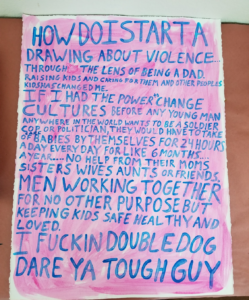 HOW DO I START A
DRAWING ABOUT VIOLENCE...
THROUGH... THE LENS OF BEING A DAD.
RAISING KIDS AND CARING FOR THEM AND OTHER PEOPLES
KIDS HAS CHANGED ME.
IF I HAD THE POWER CHANGE
CULTURES BEFORE ANY YOUNG MAN
ANYWHERE IN THE WORLD WANTS TO BE A SOLDIER
COP OR POLITICIAN, THEY WOULD HAVE TO TAKE
OF BABIES BY THEMSELVES FOR 24 HOURS
A DAY EVERYDAY FOR LIKE 6 MONTHS...
A YEAR.... NO HELP FROM THEIR MOMS
SISTERS WIVES AUNTS OR FRIENDS.
MEN WORKING TOGETHER
FOR NO OTHER PURPOSE BUT
KEEPING KIDS SAFE HEALTHY AND
LOVED.
I FUCKIN DOUBLE DOG
DARE YA TOUGH GUY